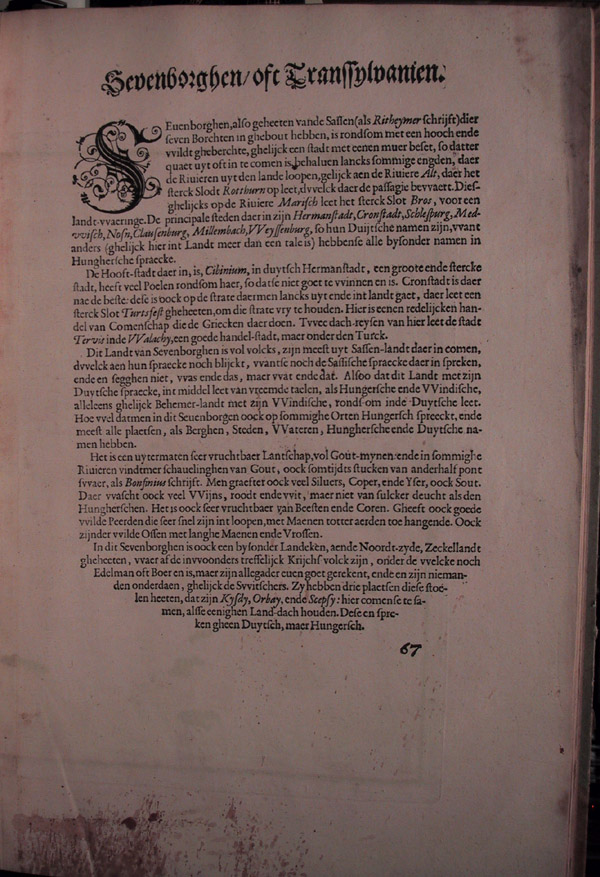 Sevenborghen/ oft Transsylvanien.
SEuenborghen, also geheeten vande Sassen (als Ritheymer schrijft) dier
seven Borchten in ghebout hebben, is rondsom met een hooch ende
vvildt gheberchte, ghelijck een stadt met eenen muer beset, so datter
quaet uyt oft in te comen is, behaluen lancks sommige engden, daer
de Riuieren uyt den lande loopen, gelijck aen de Riuiere Alt, daer het
sterck Slodt Rottburn op leet, dvvelck daer de passagie bevvaert. Dies-
ghelijcks op de Riuiere Marisch leet het sterck Slot Bros, voor een
landt-vvaeringe. De principale steden daer in zijn Hermanstadt, Cronstadt, Schlesburg, Med-
vvisch, Nosn, Clausenburg, Millembach, VVeyssenburg, so hun Duijtsche namen zijn, vvant
anders (ghelijck hier int Landt meer dan een tale is) hebbense alle bysonder namen in
Hunghersche spraecke.
De Hooft-stadt daer in, is, Cibinium, in duytsch Hermanstadt, een groote ende stercke
stadt, heeft veel Poelen rondsom haer, so datse niet goet te vvinnen en is. Cronstadt is daer
nae de beste: dese is oock op de strate daermen lancks uyt ende int landt gaet, daer leet een
sterck Slot Turtsfest gheheeten, om die strate vry te houden. Hier is eenen redelijcken han-
del van Comenschap die de Griecken daer doen. Tvvee dach-reysen van hier leet de stadt
Tervis inde VValachy, een goede handel-stadt, maer onder den Turck.
Dit Landt van Sevenborghen is vol volcks, zijn meest uyt Sassen-landt daer in comen,
dvvelck aen hun spraecke noch blijckt, vvantse noch de Sassische spraecke daer in spreken,
ende en segghen niet, vvas ende das, maer vvat ende dat. Alsoo dat dit Landt met zijn
Duytsche spraecke, int middel leet van vreemde taelen, als Hungersche ende VVindische,
alleleens ghelijck Behemer-landt met zijn VVindische, rondsom inde Duytsche leet.
Hoe vvel datmen in dit Seuenborgen oock op sommighe Orten Hungersch spreeckt, ende
meest alle plaetsen, als Berghen, Steden, VVateren, Hunghersche ende Duytsche na-
men hebben.
Het is een uytermaten seer vruchtbaer Lantschap, vol Gout-mynen: ende in sommighe
Riuieren vindtmer schauelinghen van Gout, oock somtijdts stucken van anderhalf pont
svvaer, als Bonfinius schrijft. Men graefter oock veel Siluers, Coper, ende Yser, oock Sout.
Daer vvascht oock veel VVijns, roodt ende vvit, maer niet van sulcker deucht als den
Hungherschen. Het is oock seer vruchtbaer van Beesten ende Coren. Gheeft oock goede
vvilde Peerden die seer snel zijn int loopen, met Maenen totter aerden toe hangende. Oock
zijnder vvilde Ossen met langhe Maenen ende Vrossen.
In dit Sevenborghen is oock een bysonder Landeken, aende Noordt-zyde, Zeckellandt
gheheeten, vvaer af de invvoonders treffelijck Krijchs volck zijn, onder de vveleke noch
Edelman oft Boer en is, maer zijn allegader euen goet gerekent, ende en zijn nieman-
den onderdaen, ghelijck de Svvitschers. Zy hebben drie plaetsen diese stoe-
len heeten, dat zijn Kysdy, Orbay, ende Scepsy: hier comense te sa-
men, alsse eenighen Land-dach houden. Dese en spre-
ken gheen Duytsch, maer Hungersch.
67